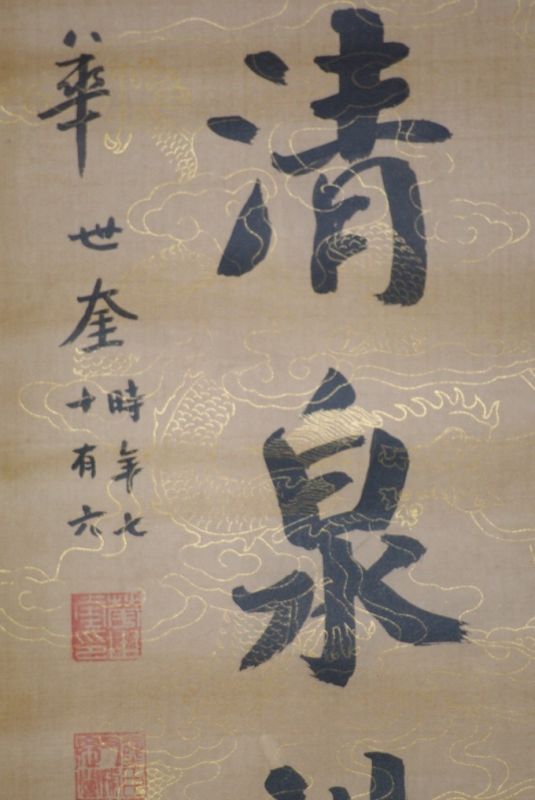 清泉
華世奎
時年七
十有六